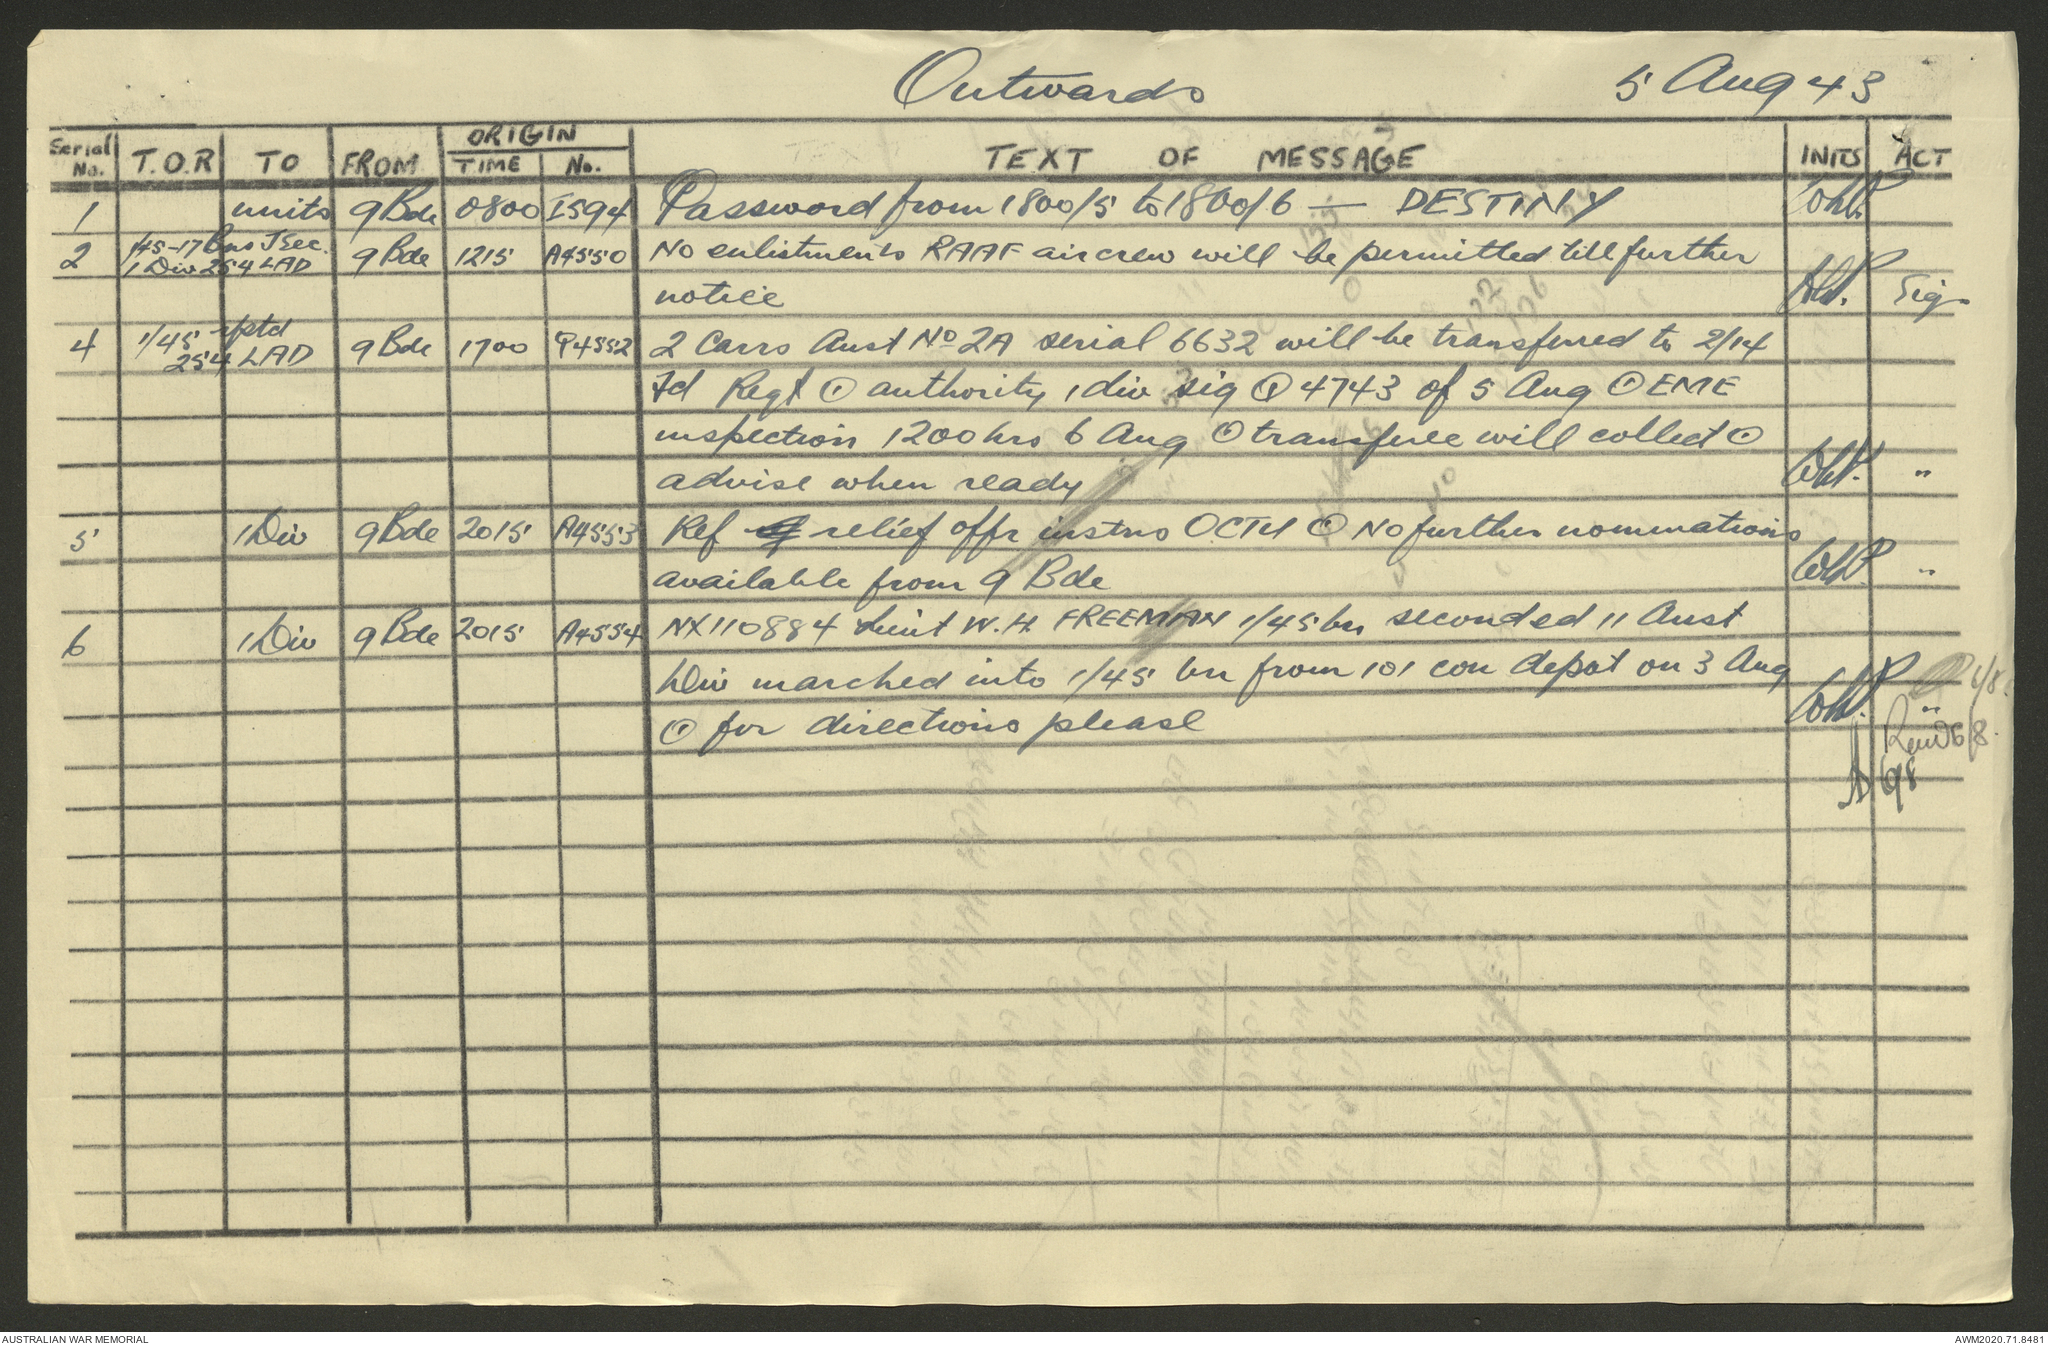 Outwards 5 Aug 43
Serial No. T.O.R TO FROM ORIGIN TIME No. TEXT OF MESSAGE INITS ACT
1 units 9 Bde 0800 I594 Password from 1800/5 to 1800/6 — DESTINY
2 1/45-17 Bns J Sec. 1 Div 254 LAD 9 Bde 1215 A4550 No enlistments RAAF aircrew will be permitted till further
notice Sig
4 1/45 rptd 254 LAD 9 Bde 1700 Q4552 2 Carrs Aust No 2A serial 6632 will be transferred to 2/14
Fd Regt ⊙ authority 1 div sig Q 4743 of 5 Aug ⊙ EME
inspection 1200 hrs 6 Aug ⊙ transferee will collect ⊙
advise when ready "
5 1 Div 9 Bde 2015 A4553 Ref relief offr instns OCTU ⊙ No further nominations
available from 9 Bde "
6 1 Div 9 Bde 2015 A4554 NX110884 Lieut W.H. FREEMAN 1/45 bn seconded 11 Aust
Div marched into 1/45 bn from 101 con depot on 3 Aug
⊙ for directions please "
6/8
AUSTRALIAN WAR MEMORIAL AWM2020.71.8481